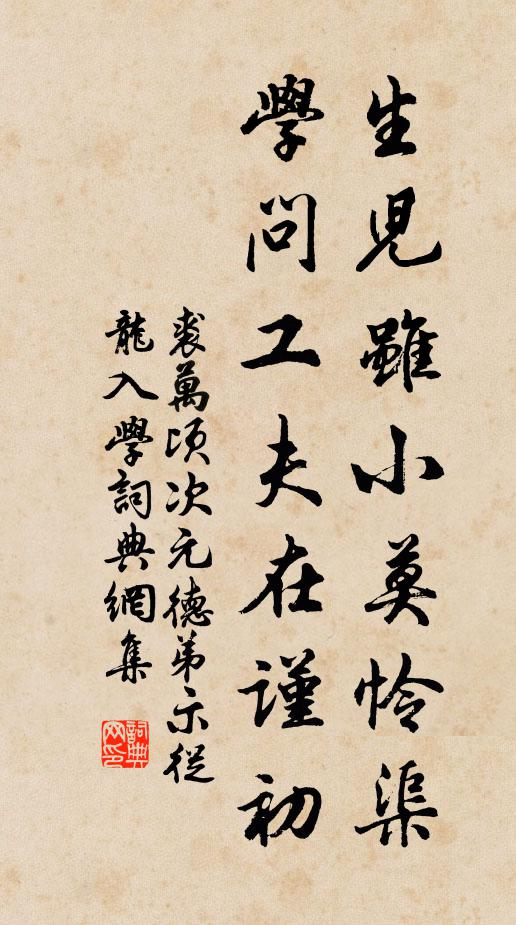 生兒雖小莫怜渠
學問工夫在謹初
裘萬頃次元德弟示從
龍入學詞典網集
詞典
网印